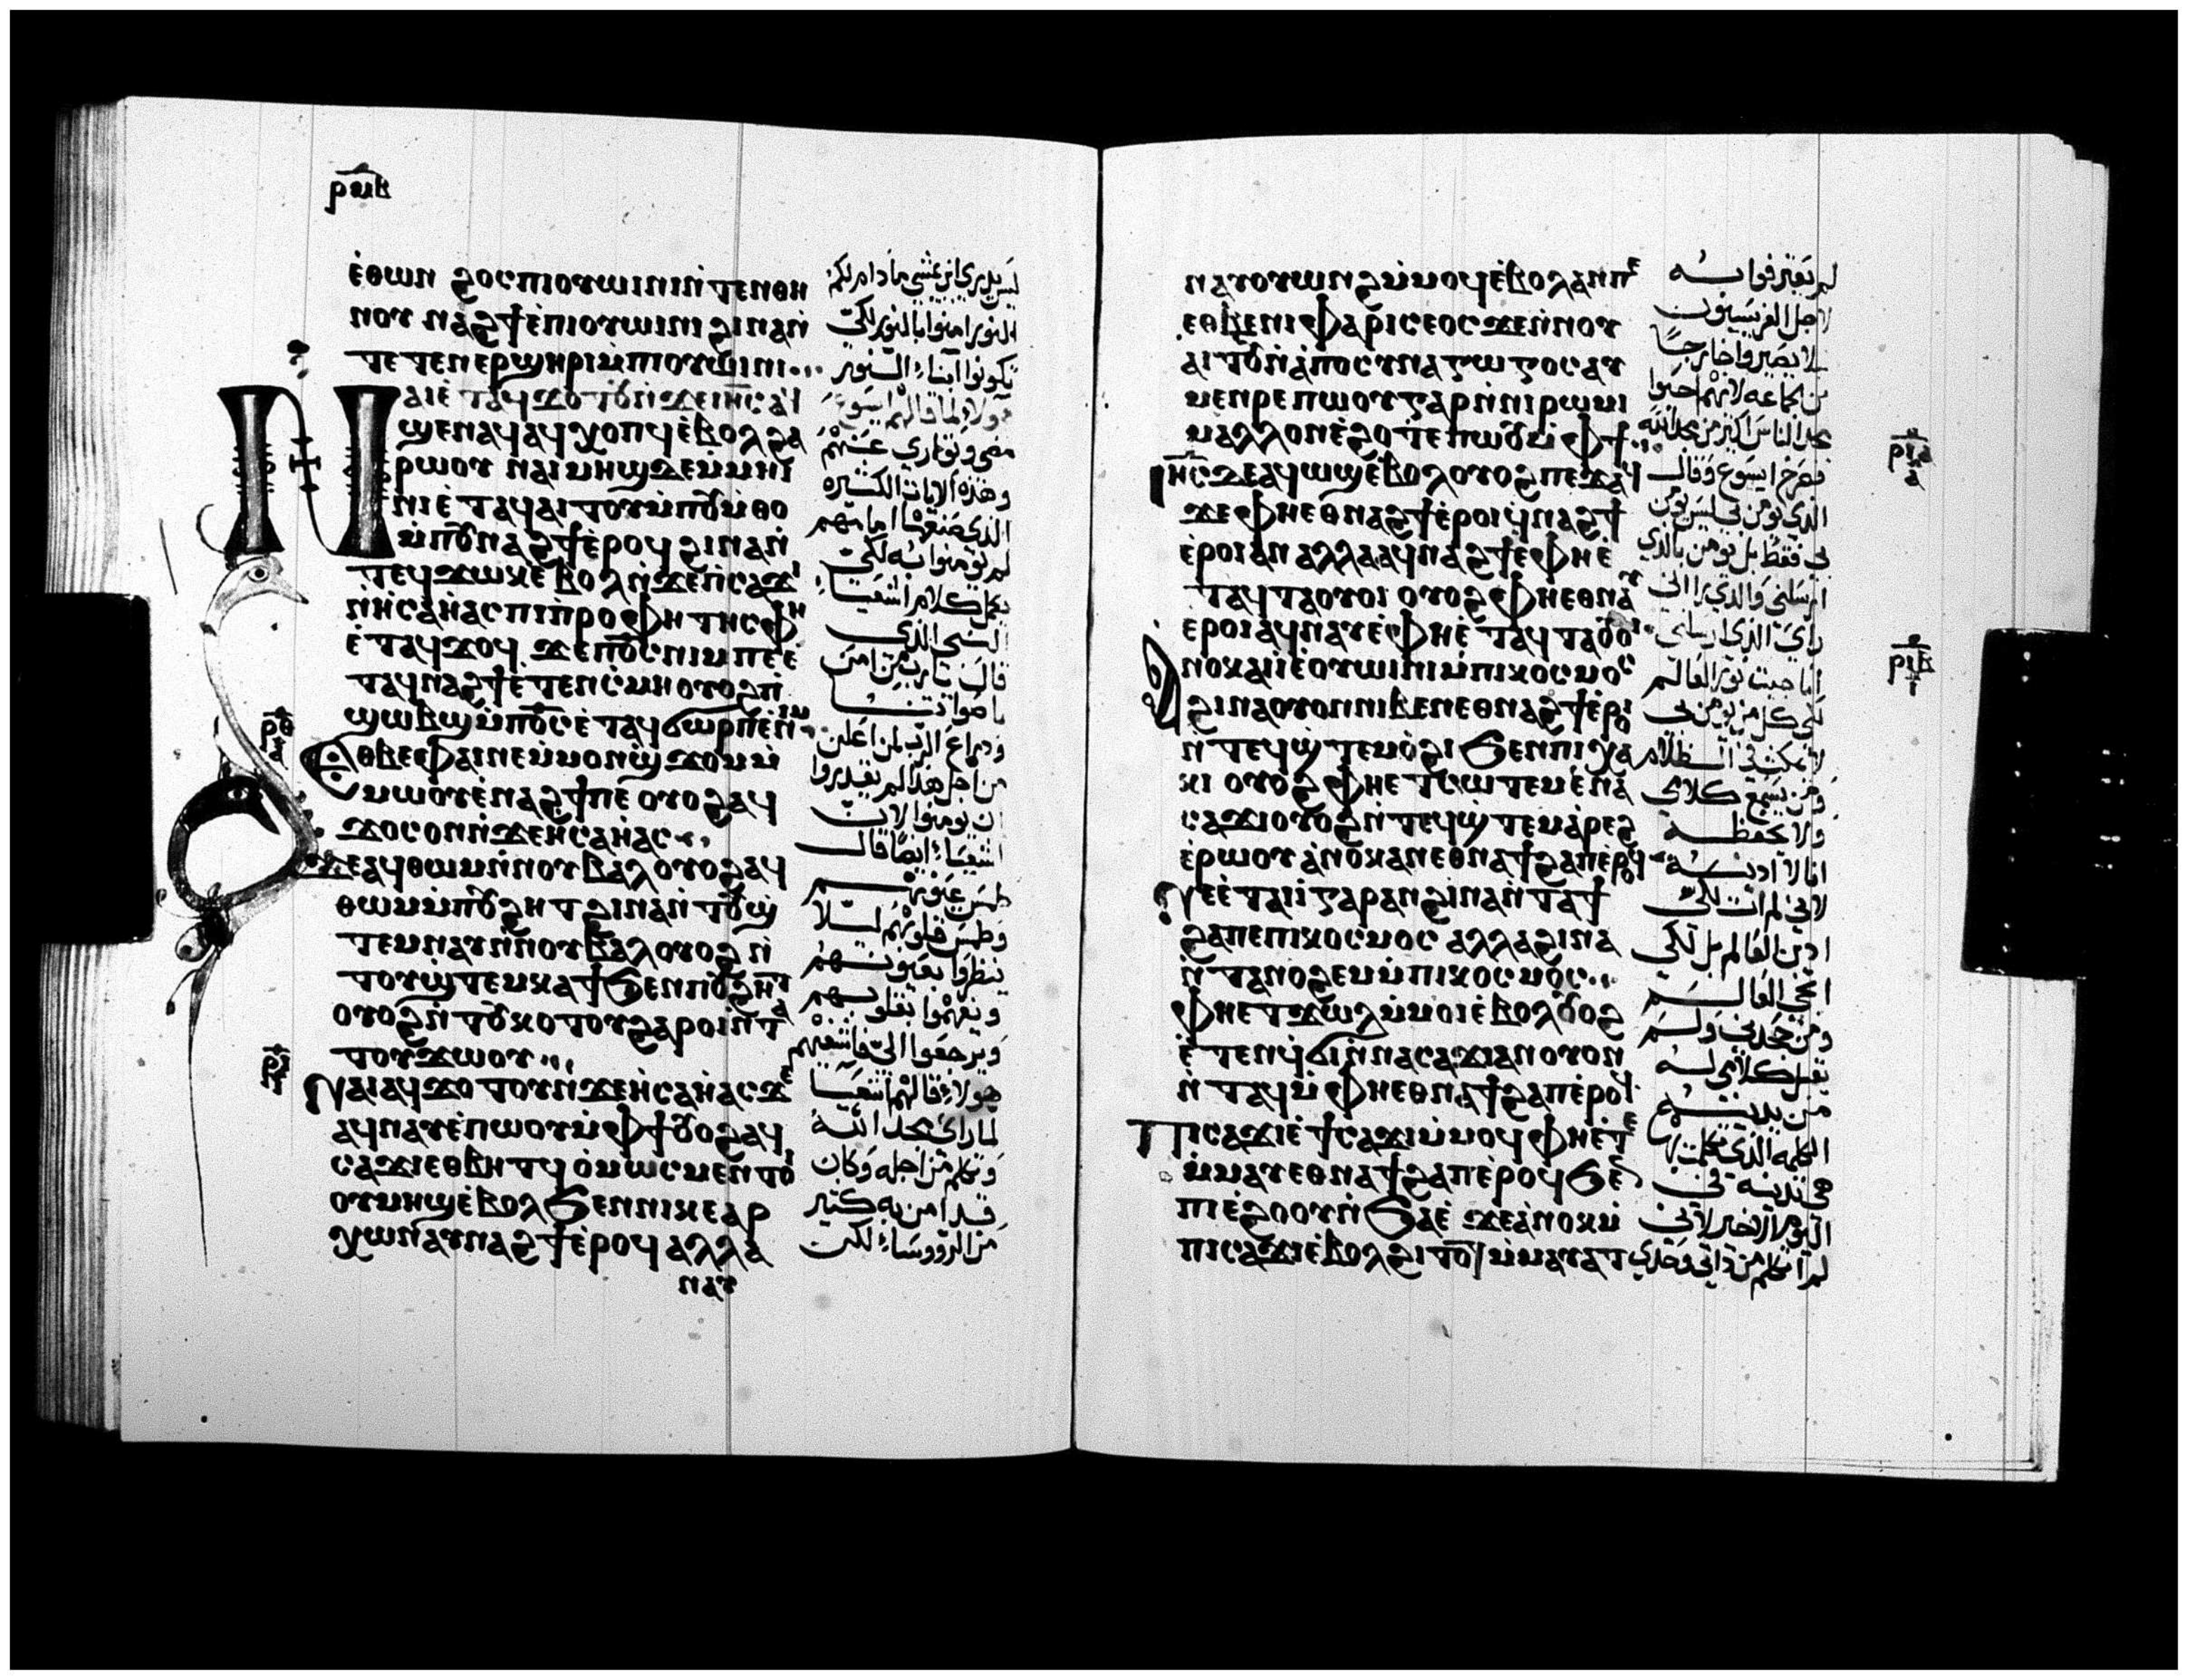 ⲣⲙⲃ
ⲉ̀ⲑⲱⲛ ϩⲟⲥ ⲡⲓⲟⲩⲱⲓⲛⲓ ⲛ̀ⲧⲉⲛⲑⲏ
ⲛⲟⲩ ⲛⲁϩϯ ⲉ̀ⲡⲓⲟⲩⲱⲓⲛⲓ ϩⲓⲛⲁ ⲛ̀
ⲧⲉⲧⲉⲛⲉⲣϣⲏⲣⲓ ⲙ̀ⲡⲓⲟⲩⲱⲓⲛⲓ
ⲛⲁⲓ ⲉ̀ⲧⲁϥϫⲟⲧⲟⲩ ⲛ̀ϫⲉ ⲓⲏ̅ⲥ ⲁϥ
ϣⲉⲛⲁϥ ⲁϥⲭⲟⲡϥ ⲉ̀ⲃⲟⲗ ϩⲁ
ⲣⲱⲟⲩ ⲛⲁⲓ ⲙⲏϣ ⲇⲉ ⲙ̀ⲙⲏⲓ
ⲛⲓ ⲉ̀ⲧⲁϥⲁⲓⲧⲟⲩ ⲙ̀ⲡⲟⲩⲙ̀ⲑⲟ
ⲙ̀ⲡⲟⲩⲛⲁϩϯ ⲉ̀ⲣⲟϥ ϩⲓⲛⲁ ⲛ̀
ⲧⲉϥϫⲱⲕ ⲉ̀ⲃⲟⲗ ⲛ̀ϫⲉ ⲡ̀ⲥⲁϫⲓ
ⲛ̀ⲏ̀ⲥⲁⲏ̀ⲁⲥ ⲡⲓⲡ̀ⲣⲟⲫⲏⲧⲏⲥ ⲫⲏ
ⲉ̀ⲧⲁϥϫⲟϥ ϫⲉ ⲡⲟ̅ⲥ ⲛⲓⲙ ⲡⲉ ⲉ̀
ⲧⲁϥⲛⲁϩϯ ⲉ̀ⲧⲉⲛⲥ̀ⲙⲏ ⲟⲩⲟϩ ⲡ̀
ϣⲱⲃϣ ⲙ̀ⲡⲟ̅ⲥ ⲉ̀ⲧⲁϥϭⲱⲣⲡ ⲉ̀ⲛⲓⲙ
ⲉⲑⲃⲉ ⲫⲁⲓ ⲛⲉ ⲙ̀ⲙⲟⲛ ϣ̀ϫⲟⲙ ⲙ̀
ⲙⲱⲟⲩ ⲉ̀ⲛⲁϩϯ ⲡⲉ ⲟⲩⲟϩ ⲁϥ
ϫⲟⲥ ⲟⲛ ⲛ̀ϫⲉ ⲏ̀ⲥⲁⲏ̀ⲁⲥ
ϫⲉ ⲁϥⲑⲱⲙ ⲛ̀ⲛⲟⲩⲃⲁⲗ ⲟⲩⲟϩ ⲁϥ
ⲑⲱⲙ ⲙ̀ⲡⲟⲩϩⲏⲧ ϩⲓⲛⲁ ⲛ̀ⲧⲟⲩϣ̀
ⲧⲉⲙⲛⲁⲩ ⲛ̀ⲛⲟⲩⲃⲁⲗ ⲟⲩⲟϩ ⲛ̀
ⲧⲟⲩϣ̀ⲧⲉⲙⲕⲁϯ ϧⲉⲛ ⲡⲟⲩϩⲏⲧ
ⲟⲩⲟϩ ⲛ̀ⲧⲟⲩⲕⲟⲧⲟⲩ ϩⲁⲣⲟⲓ ⲛ̀ⲧⲁ
ⲧⲟⲩϫⲱⲟⲩ
ⲛⲁⲓ ⲁϥϫⲟⲧⲟⲩ ⲛ̀ϫⲉ ⲏ̀ⲥⲁⲏ̀ⲁⲥ ϫⲉ
ⲁϥⲛⲁⲩ ⲉ̀ⲡⲱⲟⲩ ⲙ̀ⲫϯ ⲟⲩⲟϩ ⲁϥ
ⲥⲁϫⲓ ⲉⲑⲃⲏⲧϥ ⲟ̀ⲙⲱⲥ ⲙⲉⲛⲧⲟⲓ
ⲟⲩⲙⲏϣ ⲉ̀ⲃⲟⲗ ϧⲉⲛ ⲛⲓⲕⲉⲁⲣ
ⲭⲱⲛ ⲁⲩⲛⲁϩϯ ⲉ̀ⲣⲟϥ ⲁⲗⲗⲁ
ⲛⲁⲩ
ⲣⲑ
ⲣⲓ
ليس يدري اين يمشي ما دام لكم
النور امنوا بالنور لكي
تكونوا ابناء النور
هولاء لما قالهم ايسوع
مضي وتواري عنهم
وهذه الايات الكثيره
الذي صنعها امامهم
لم يومنوا به لكي
يكمل كلام اشعيا
النبي الذي
قال يارب من امن
وذراع الرب لمن اعلن
من اجل هذا لم يقدروا
ان يومنوا لان
اشعيا ايضا قال
طمس عيونهم
وطمس قلوبهم ليلا
ينظروا بعيونهم
ويفهموا بقلوبهم
ويرجعوا الي فاشفيهم
هولاء قالهم اشعيا
لما راي مجد الله
وتكلم من اجله وكان
قد امن به كثير
من الرووساء لكن
ⲛⲁⲩⲟⲩⲱⲛϩ ⲙ̀ⲙⲟϥ ⲉ̀ⲃⲟⲗ ⲁⲛ ⲡⲉ
ⲉⲑⲃⲉ ⲛⲓⲫⲁⲣⲓⲥⲉⲟⲥ ϫⲉ ⲛ̀ⲛⲟⲩ
ⲁⲓⲧⲟⲩ ⲛ̀ⲁ̀ⲡⲟⲥⲩⲛⲁⲅⲱⲅⲟⲥ ⲁⲩ
ⲙⲉⲛⲣⲉ ⲡⲱⲟⲩ ⲅⲁⲣ ⲛ̀ⲛⲓⲣⲱⲙⲓ
ⲙⲁⲗⲗⲟⲛ ⲉ̀ϩⲟⲧⲉ ⲡⲱⲟⲩ ⲙ̀ⲫϯ
ⲓⲏ̅ⲥ ⲇⲉ ⲁϥⲱϣ ⲉ̀ⲃⲟⲗ ⲟⲩⲟϩ ⲡⲉϫⲁϥ
ϫⲉ ⲫⲏⲉⲑⲛⲁϩϯ ⲉ̀ⲣⲟⲓ ϥ̀ⲛⲁϩϯ
ⲉ̀ⲣⲟⲓ ⲁⲛ ⲁⲗⲗⲁ ⲁϥⲛⲁϩϯ ⲉ̀ⲫⲏⲉ̀
ⲧⲁϥⲧⲁⲟⲩⲟⲓ ⲟⲩⲟϩ ⲫⲏⲉⲑⲛⲁⲩ
ⲉⲣⲟⲓ ⲁϥⲛⲁⲩ ⲉ̀ⲫⲏⲉ̀ⲧⲁϥⲧⲁⲟⲩⲟⲓ
ⲁⲛⲟⲕ ⲁⲓⲓ̀ ⲉⲟⲩⲱⲓⲛⲓ ⲙ̀ⲡⲓⲕⲟⲥⲙⲟⲥ
ϩⲓⲛⲁ ⲟⲩⲟⲛ ⲛⲓⲃⲉⲛ ⲉⲑⲛⲁϩϯ ⲉ̀ⲣⲟⲓ
ⲛ̀ⲧⲉϥϣ̀ⲧⲉⲙⲟ̀ϩⲓ ϧⲉⲛ ⲡⲓⲭⲁ
ⲕⲓ ⲟⲩⲟϩ ⲫⲏⲉⲧⲥⲱⲧⲉⲙ ⲉ̀ⲛⲁ
ⲥⲁϫⲓ ⲟⲩⲟϩ ⲛ̀ⲧⲉϥϣ̀ⲧⲉⲙⲁ̀ⲣⲉϩ
ⲉ̀ⲣⲱⲟⲩ ⲁ̀ⲛⲟⲕ ⲁⲛ ⲉⲑⲛⲁϯϩⲁⲡ ⲉ̀ⲣⲟϥ
ⲛⲉ ⲉ̀ⲧⲁⲓⲓ̀ ⲅⲁⲣ ⲁⲛ ϩⲓⲛⲁ ⲛ̀ⲧⲁϯ
ϩⲁⲡ ⲉⲡⲓⲕⲟⲥⲙⲟⲥ ⲁⲗⲗⲁ ϩⲓⲛⲁ
ⲛ̀ⲧⲁⲛⲟϩⲉⲙ ⲙ̀ⲡⲓⲕⲟⲥⲙⲟⲥ
ⲫⲏⲉⲧϫⲱⲗ ⲙ̀ⲙⲟⲓ ⲉ̀ⲃⲟⲗ ⲟⲩⲟϩ
ⲉ̀ⲧⲉⲛϥ̀ϭⲓ ⲛ̀ⲛⲁⲥⲁϫⲓ ⲁⲛ ⲟⲩⲟⲛ
ⲛ̀ⲧⲁϥ ⲙ̀ⲫⲏⲉⲑⲛⲁϯϩⲁⲡ ⲉ̀ⲣⲟϥ
ⲡⲓⲥⲁϫⲓ ⲉ̀ϯⲥⲁϫⲓ ⲙ̀ⲙⲟϥ ⲫⲏⲉ̀ⲧⲉ
ⲙ̀ⲙⲁⲩ ⲉⲑⲛⲁϯϩⲁⲡ ⲉ̀ⲣⲟϥ ϧⲉⲛ
ⲡⲓⲉ̀ϩⲟⲟⲩ ⲛ̀ϧⲁⲉ̀ ϫⲉ ⲁ̀ⲛⲟⲕ ⲙ̀
ⲡⲓⲥⲁϫⲓ ⲉ̀ⲃⲟⲗ ϩⲓⲧⲟⲧ ⲙ̀ⲙⲁⲩⲁⲧ
لم يعترفوا به
لاجل الفريسيون
لا يصيروا خارجا
من الجماعه لانهم احبوا
مجد الناس اكثر من مجد الله
فصرخ ايسوع وقال
الذي يومن بي ليس يومن
بي فقط بل يومن بالذي
ارسلني والذي يراني
راي الذي ارسلني
انا جيت نور العالم
لكي كل من يومن بي
لا يمكث في الظلام
ومن يسمع كلامي
ولا يحفظه
انا لا ادينه
لاني لم ات لكي
ادين العالم بل لكي
احيي العالم
ومن جحدني ولم
يقبل كلامي له
من يدينه
الكلمه الذي تكلمت بها
هي تدينه في
اليوم الاخير لاني
لم اتكلم من ذاتي وحدي
ⲣⲓⲁ
ⲣⲓⲃ